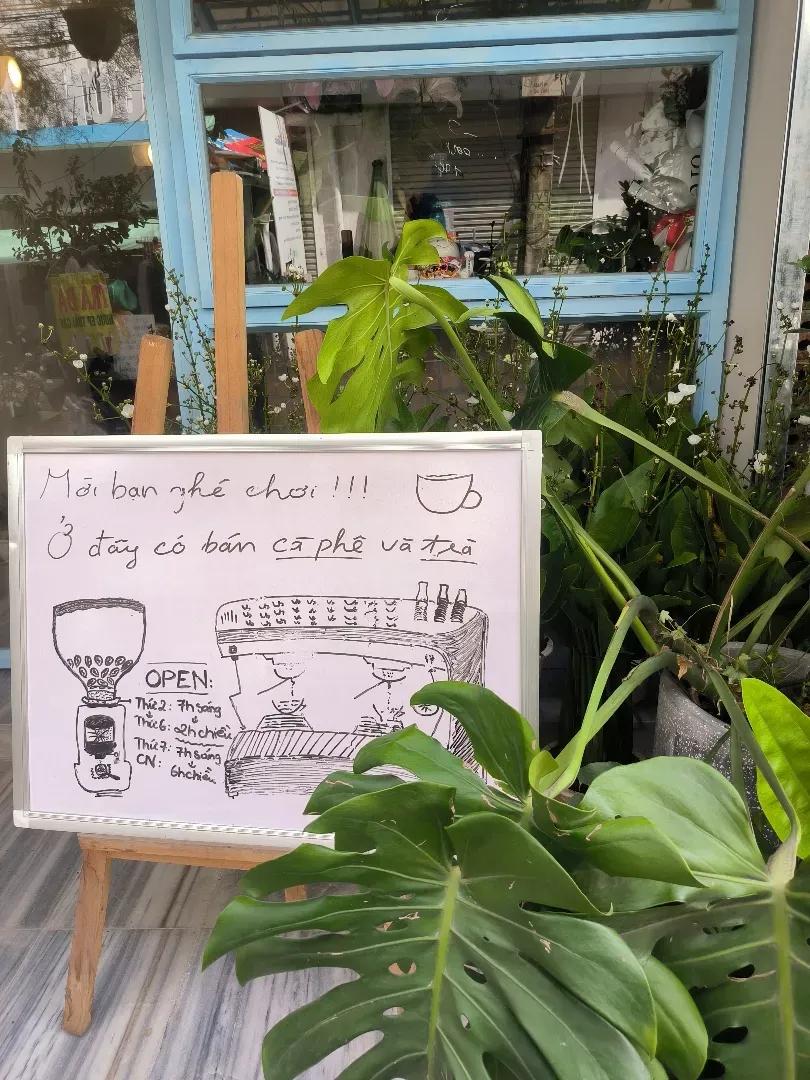 Mời bạn ghé chơi !!!
Ở đây có bán cà phê và trà
OPEN:
Thứ 2: 7h sáng
Thứ 6: 2h chiều
Thứ 7: 7h sáng
CN: 6h chiều